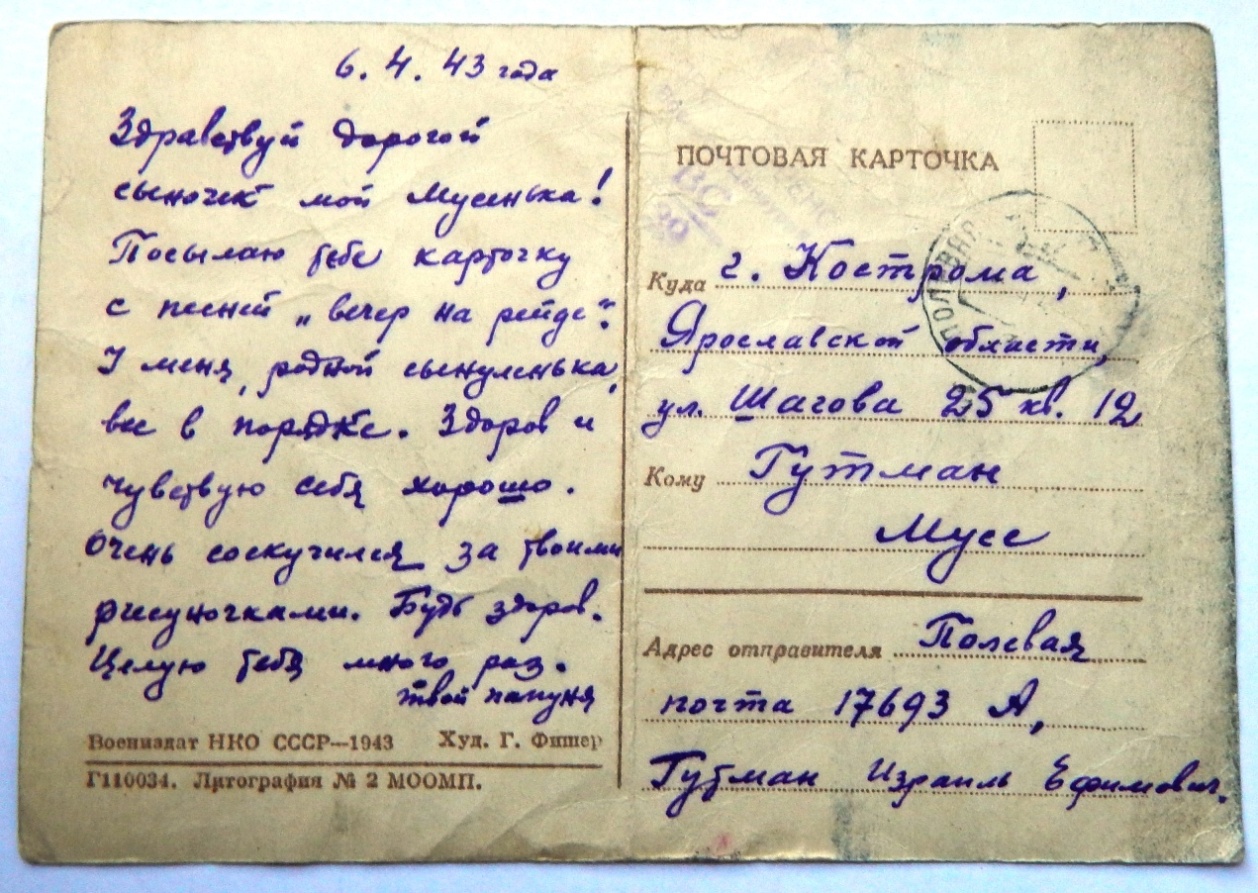 6. 4. 43 года
Здравствуй дорогой
сыночек мой Мусенька!
Посылаю тебе карточку
с песней „вечер на рейде".
У меня, родной сынуленька,
все в порядке. Здоров и
чувствую себя хорошо.
Очень соскучился за твоими
рисуночками. Будь здоров.
Целую тебя много раз.
твой папуня
Воениздат НКО СССР—1943 Худ. Г. Фишер
Г110034. Литография № 2 МООМП.
ПОЧТОВАЯ КАРТОЧКА
Куда г. Кострома,
Ярославской области,
ул. Шагова 25 кв. 12
Кому Гутман
Мусе
Адрес отправителя Полевая
почта 17693 А,
Гутман Израиль Ефимович.